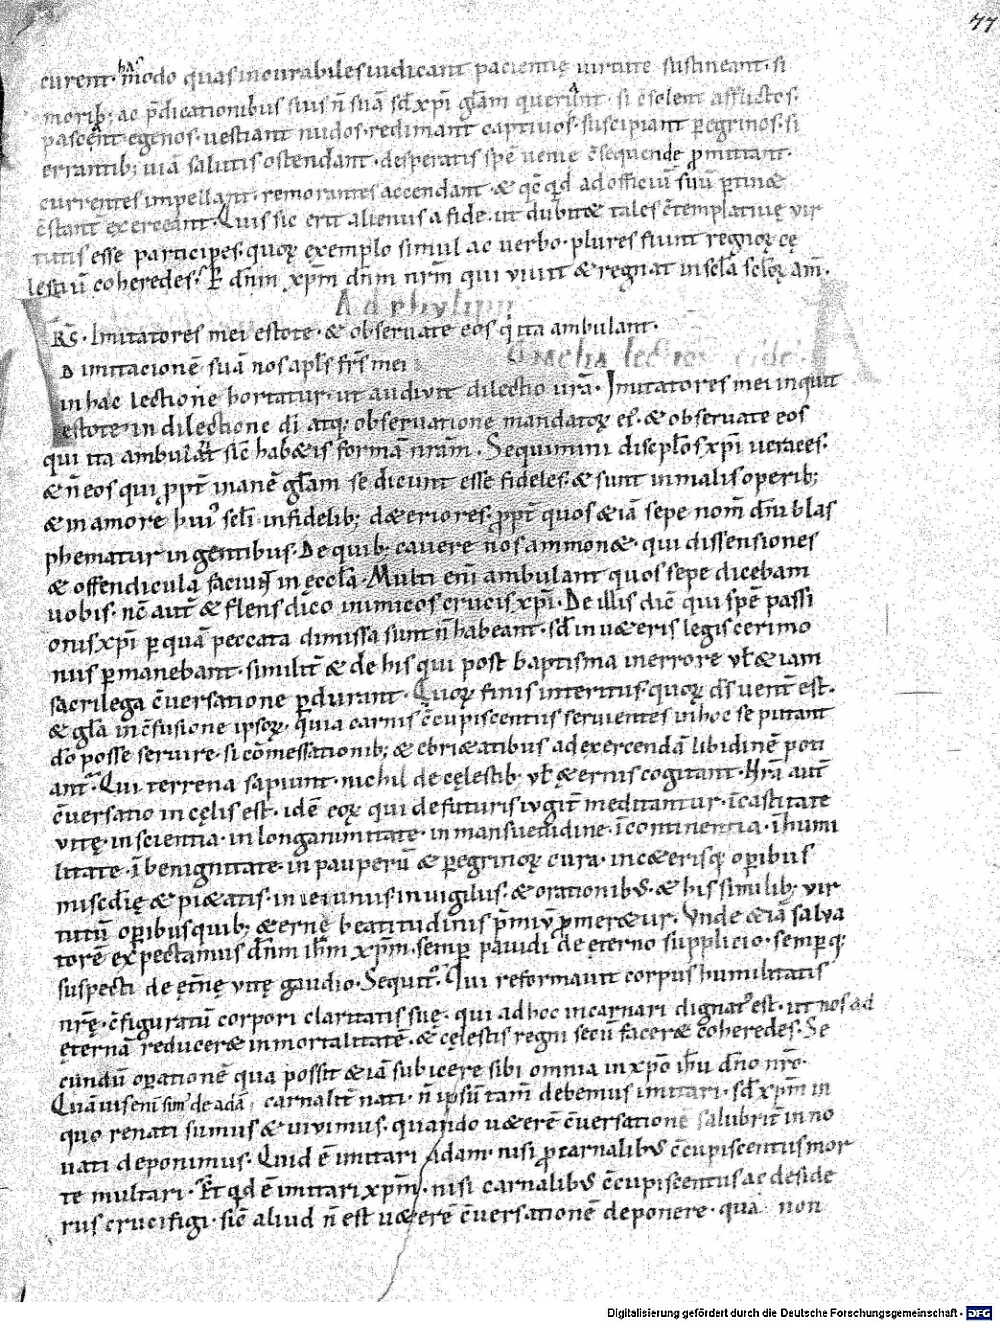 77
curent. hac modo quas incurabiles iudicant pacientię uirtute sustineant. si
morib; ac p̄dicationibus suis n̄ suā sḋ xp̄i gl̄am querunt. si c̄solent afflictos.
pascant egenos. uestiant nudos. redimant captiuos. suscipiant peregrinos. si
errantib; uiā salutis ostendant. desperatis spē uenie c̄sequende promittant.
currentes impellant. remorantes accendant. & qc̄qd̄ ad officiū suū ptin&
c̄stant exerceant. Quis sic erit alienus a fide. ut dubit& tales c̄templatiuę uir
tutis esse participes. quoꝝ exemplo simul ac uerbo. plures fiunt regnoꝝ cę
lestiū coheredes. P dn̄m xp̄m dn̄m nr̄m qui uiuit & regnat in scl̄a scl̄oꝝ am̄.
Ad phylipp
FRS. Imitatores mei estote. & obseruate eos q ita ambulant.
D imitacionē suā nos apls frs mei
in hac lectione hortatur. ut audiuit dilectio ura. Imitatores mei inquit
estote in dilectione di atq; obseruatione mandatoꝝ ei. & obseruate eos
qui ita ambulant sic̄ hab&is formā nr̄am. Sequimini discplos xp̄i ueraces.
& n̄ eos qui ppt̄ inanē gl̄am se dicunt esse fideles. & sunt in malis operib;
& in amore hui' scl̄i infidelib; d&eriores. propt̄ quos &iā sepe nom̄ dn̄i blas
phematur in gentibus. De quib; cauere nos ammon&. qui dissensiones
& offendicula faciunt in eccl̄a. Multi eni ambulant quos sepe dicebam
uobis. nc̄ aut̄ & flens dico inimicos crucis xp̄i. De illis dic̄ qui spē passi
onis xp̄i p quā peccata dimissa sunt n̄ habeant. sḋ in u&eris legis cerimo
niis pmanebant. similit̄ & de his qui post baptisma in errore ut̄ &iam
sacrilega c̄uersatione pdurant. Quoꝝ finis interitus. quoꝝ ds̄ uent̄ est.
& gl̄a in c̄fusione ipsoꝝ. quia carnis c̄cupiscentiis seruientes in hoc se putant
dō posse seruire. si com̄essationib; & ebri&atibus ad exercendā libidinē poti
ant'. Qui terrena sapiunt. nichil de cęlestib; ut̄ &ernis cogitant. Nr̄a aut̄
c̄uersatio in cęlis est. idē eoꝝ qui de futuris iugit̄ meditantur. ī castitate
uitę. in scientia. in longanimitate. in mansu&udine. ī continentia. ī humi
litate. ī benignitate. in pauperū & peregrinoꝝ cura. in c&erisq; opibus
misc̄dię & pi&atis. in ieiuniis in uigiliis. & orationib; & his similib; uir
tutū opibus quib; &ernę beatitudinis p̄miū pmer&ur. Vnde &iā salua
torē expectamus dn̄m ihm̄ xp̄m. semp pauidi de ęterno supplicio. sempq;
suspecti de ęt̄nę uitę gaudio. Sequit'. Qui reformauit corpus humilitatis
nr̄ę. c̄figuratū corpori claritatis suę. qui ad hoc incarnari dignat' est. ut nos ad
ęternā reducer& inmortalitatē. & cęlestis regni secū facer& coheredes. Se
cundū operationē qua possit &iā subicere sibi omnia in xp̄o ihū dn̄o nr̄o.
Quāuis eni sim' de adā carnalit̄ nati. n̄ ipsū tam̄ debemus imitari. sḋ xp̄m in
quo renati sumus & uiuimus. quando u&erē c̄uersationē salubrit̄ in no
uati deponimus. Quid ē imitari Adam. nisi p carnalib; c̄cupiscentiis mor
te multari. Et qd ē imitari xp̄m. nisi carnalib; c̄cupiscentiis ac deside
riis crucifigi. sic̄ aliud n̄ est u&erē c̄uersationē deponere. quā non
Digitalisierung gefördert durch die Deutsche Forschungsgemeinschaft - DFG